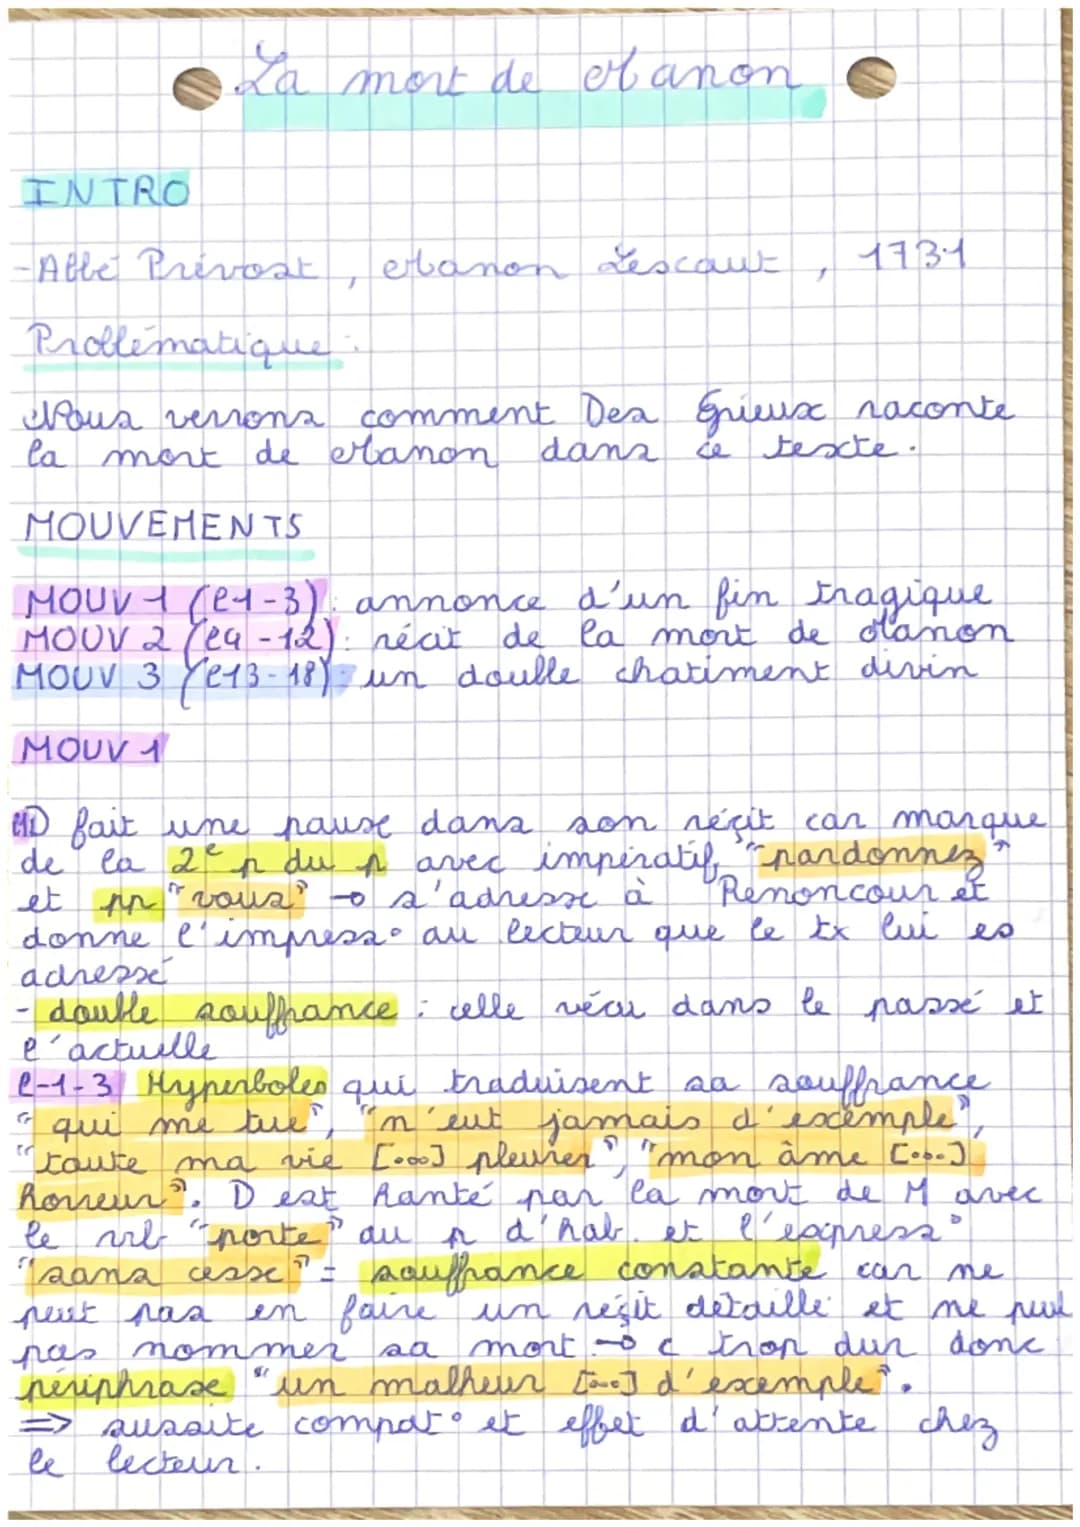 La mort de Manon
INTRO
- Abbé Prévost, Manon Lescaut, 1731
Problématique :
Nous verrons comment Des Grieux raconte
la mort de Manon dans ce texte.
MOUVEMENTS
MOUV 1 (l1-3): annonce d'un fin tragique
MOUV 2 (l4-12): récit de la mort de Manon
MOUV 3 (l13-18): un double chatiment divin
MOUV 1
D fait une pause dans son réçit car marque
de la 2e p du p avec impératif "pardonnez"
et pp "vous" → s'adresse à Renoncour et
donne l'impress° au lecteur que le tx lui es
adressé
- double souffrance : celle vécu dans le passé et
l'actuelle
l-1-3 Hyperboles qui traduisent sa souffrance
"qui me tue", "n'eut jamais d'exemple",
"toute ma vie [...] pleurer", "mon âme [...]
horreur". D est hanté par la mort de M avec
le vrb "porte" au p d'hab. et l'express°
"sans cesse" = souffrance constante car ne
peut pas en faire un réçit détaillé et ne peut
pas nommer sa mort → c trop dur donc
périphrase "un malheur [...] d'exemple".
=> sussite compat° et effet d'attente chez
le lecteur.